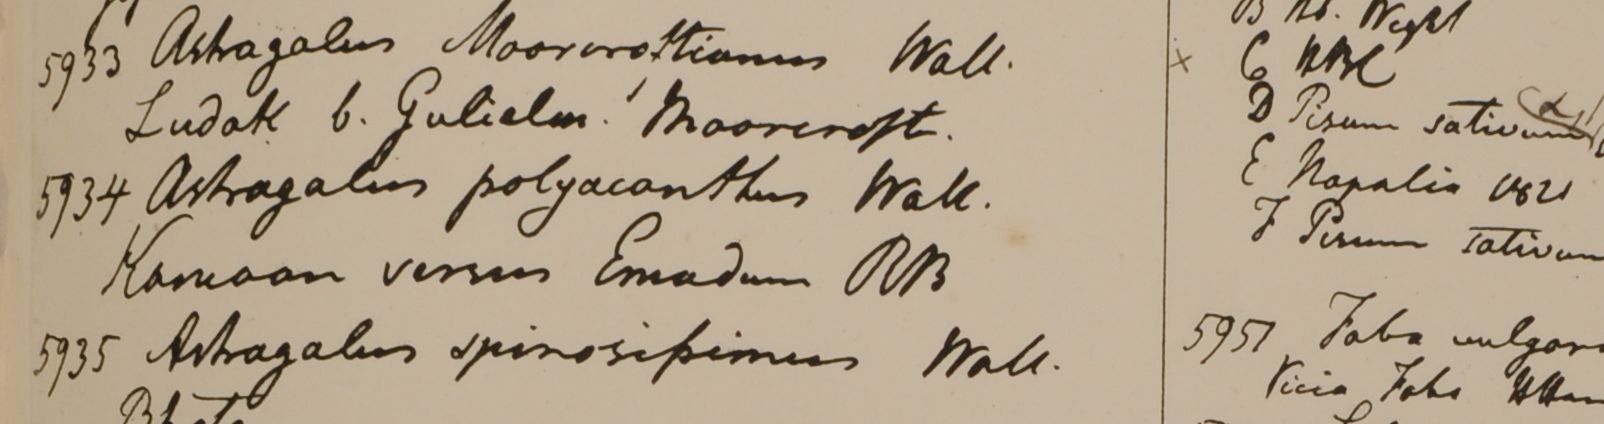 5933 Astragalus Moorcroftianus Wall.
Ludak b. Gulielm. Moorcroft.
5934 Astragalus polyacanthus Wall.
Kamaon versus Emodum RB
5935 Astragalus spinosissimus Wall.
B Hb. Wight
C HBC
D Pisum sativum
E Napalia 1821
F Pisum sativum
5951 Faba vulgar
Vicia Faba HHam